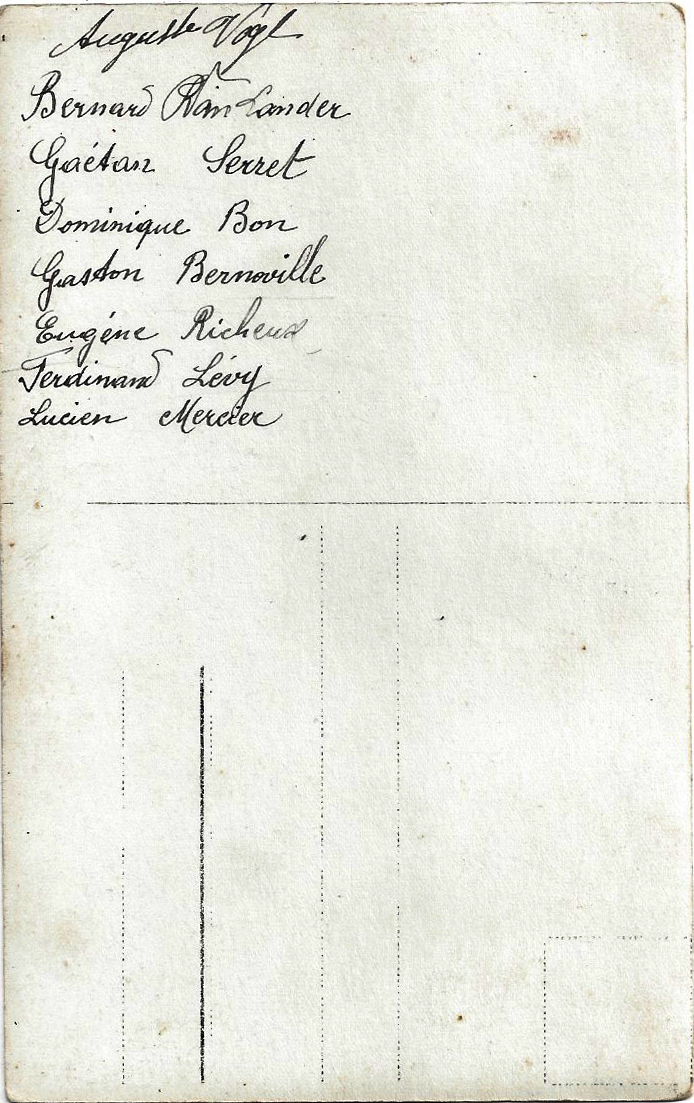 Auguste Vogl
Bernard Lander
Gaétan Serret
Dominique Bon
Gaston Bernoville
Eugéne Richeux
Ferdinand Lévy
Lucien Mercier